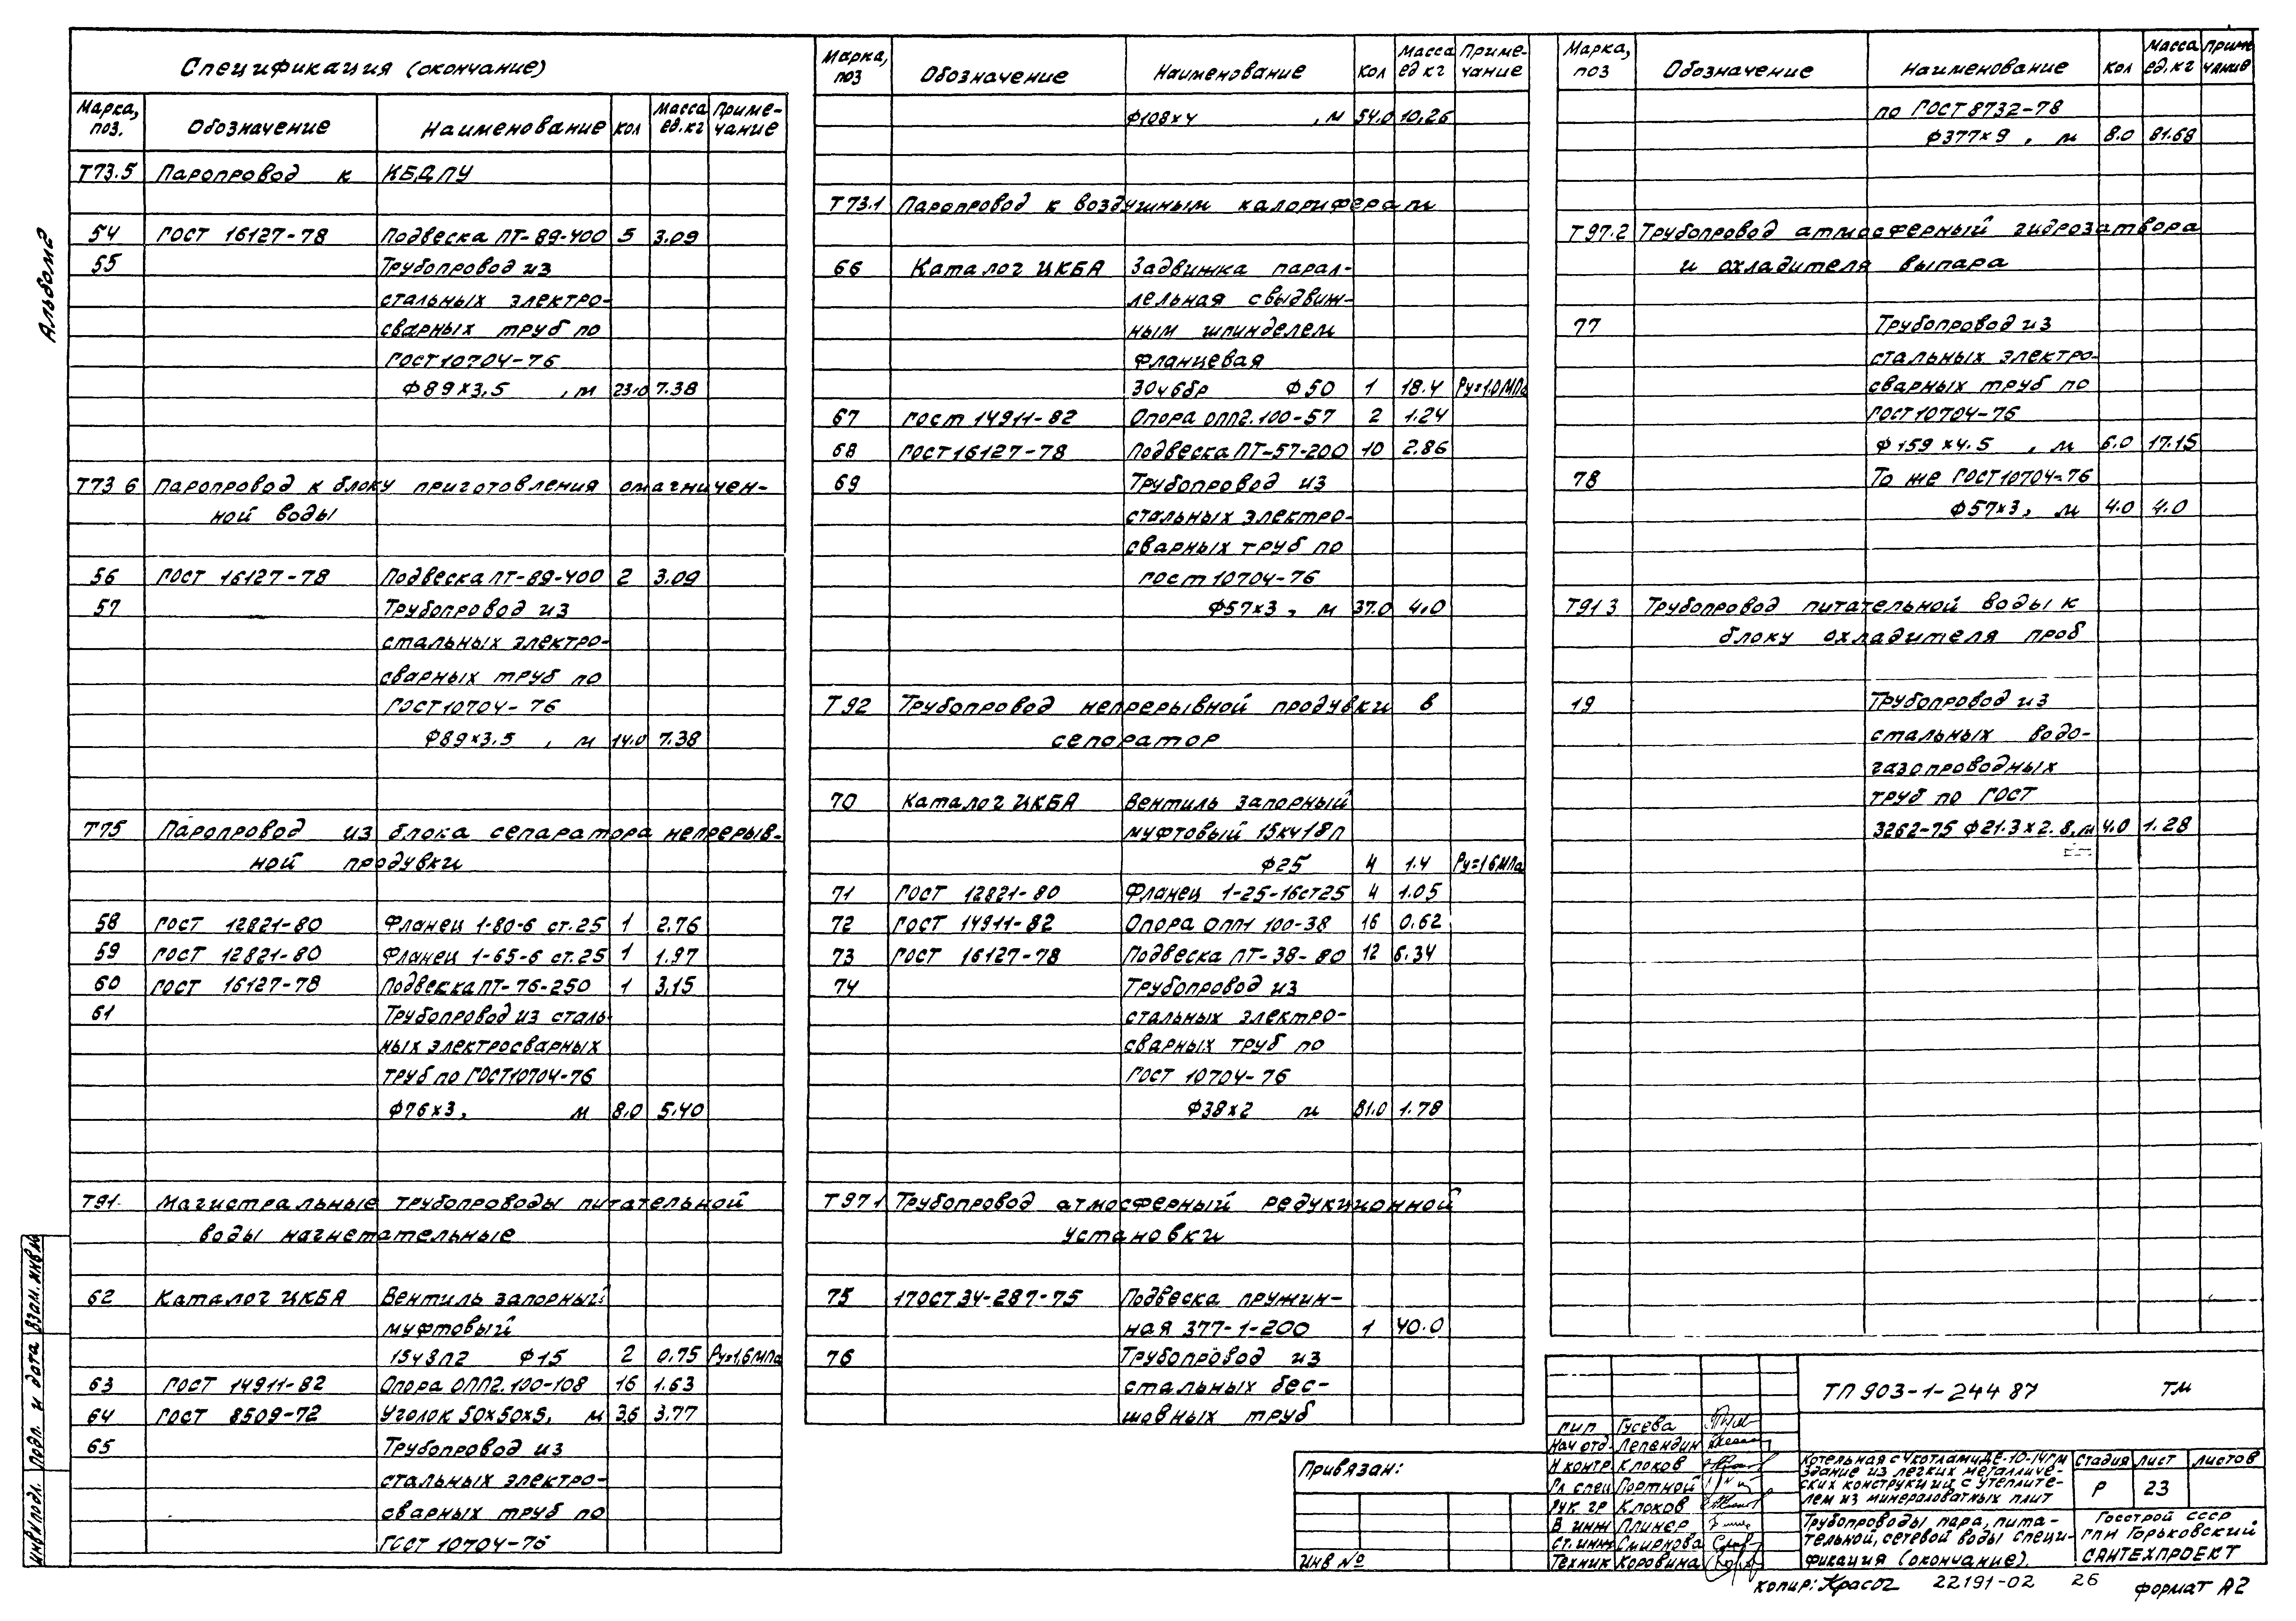 Альбом 2
Спецификация (окончание)
Марка, поз. Обозначение Наименование Кол Масса ед.кг Приме-чание
Т73.5 Паропровод к КБДПУ
54 ГОСТ 16127-78 Подвеска ПТ-89-400 5 3.09
55 Трубопровод из
стальных электро-
сварных труб по
ГОСТ 10704-76
Ф89×3,5 , м 23.0 7.38
Т73 6 Паропровод к блоку приготовления омагничен-
ной воды
56 ГОСТ 16127-78 Подвеска ПТ-89-400 2 3.09
57 Трубопровод из
стальных электро-
сварных труб по
ГОСТ 10704-76
Ф89×3.5 , м 14.0 7.38
Т75 Паропровод из блока сепаратора непрерыв-
ной продувки
58 ГОСТ 12821-80 Фланец 1-80-6 ст.25 1 2.76
59 ГОСТ 12821-80 Фланец 1-65-6 ст.25 1 1.97
60 ГОСТ 16127-78 Подвеска ПТ-76-250 1 3.15
61 Трубопровод из сталь-
ных электросварных
труб по ГОСТ 10704-76
Ф76×3, м 8.0 5.40
Т91. Магистральные трубопроводы питательной
воды нагнетательные
62 Каталог ЦКБА Вентиль запорный
муфтовый
15ч8п2 Ф15 2 0.75 Ру=1,6МПа
63 ГОСТ 14911-82 Опора ОПП2.100-108 16 1.63
64 ГОСТ 8509-72 Уголок 50×50×5, м 3.6 3.77
65 Трубопровод из
стальных электро-
сварных труб по
ГОСТ 10704-76
Марка, поз Обозначение Наименование Кол Масса ед кг Приме-чание
Ф108×4 , м 54.0 10.26
Т73.1 Паропровод к воздушным калориферам
66 Каталог ЦКБА Задвижка парал-
лельная с выдвиж-
ным шпинделем
фланцевая
30ч6бр Ф50 1 18.4 Ру=1.0МПа
67 ГОСТ 14911-82 Опора ОПП2.100-57 2 1.24
68 ГОСТ 16127-78 Подвеска ПТ-57-200 10 2.86
69 Трубопровод из
стальных электро-
сварных труб по
ГОСТ 10704-76
Ф57×3, м 37.0 4.0
Т92 Трубопровод непрерывной продувки в
сепоратор
70 Каталог ЦКБА Вентиль запорный
муфтовый 15кч18п
Ф25 4 1.4 Ру=1 6МПа
71 ГОСТ 12821-80 Фланец 1-25-16ст25 4 1.05
72 ГОСТ 14911-82 Опора ОПП1 100-38 16 0.62
73 ГОСТ 16127-78 Подвеска ПТ-38-80 12 6.34
74 Трубопровод из
стальных электро-
сварных труб по
ГОСТ 10704-76
Ф38×2 м 81.0 1.78
Т97 1 Трубопровод атмосферный редукционной
установки
75 17ОСТ 34-287-75 Подвеска пружин-
ная 377-1-200 1 40.0
76 Трубопровод из
стальных бес-
шовных труб
Марка, поз Обозначение Наименование Кол Масса ед.кг Приме чание
по ГОСТ 8732-78
Ф377×9 , м 8.0 81.68
Т97.2 Трубопровод атмосферный гидрозатвора
и охладителя выпара
77 Трубопровод из
стальных электро-
сварных труб по
ГОСТ 10704-76
Ф159×4.5 , м 6.0 17.15
78 То же ГОСТ 10704-76
Ф57×3, м 4.0 4.0
Т91 3 Трубопровод питательной воды к
блоку охладителя проб
19 Трубопровод из
стальных водо-
газопроводных
труб по ГОСТ
3262-75 Ф21.3×2.8, м 4.0 1.28
Инв.№ подл. Подп. и дата Взам. инв.№
Привязан:
Инв №
ТП 903-1-244 87 ТМ
ГИП Гусева
Нач отд. Лепендин
Н контр. Клоков
Гл спец Портной
Рук. гр Клоков
В инж Плинер
Ст. инж Смирнова
Техник Коровина
Котельная с 4 котлами ДЕ-10-14ГМ
Здание из легких металличе-
ских конструкций с утеплите-
лем из минераловатных плит
Стадия Лист Листов
Р 23
Трубопроводы пара, пита-
тельной, сетевой воды специ-
фикация (окончание).
Госстрой СССР
ГПИ Горьковский
САНТЕХПРОЕКТ
Копир: 22191-02 26 формат А2